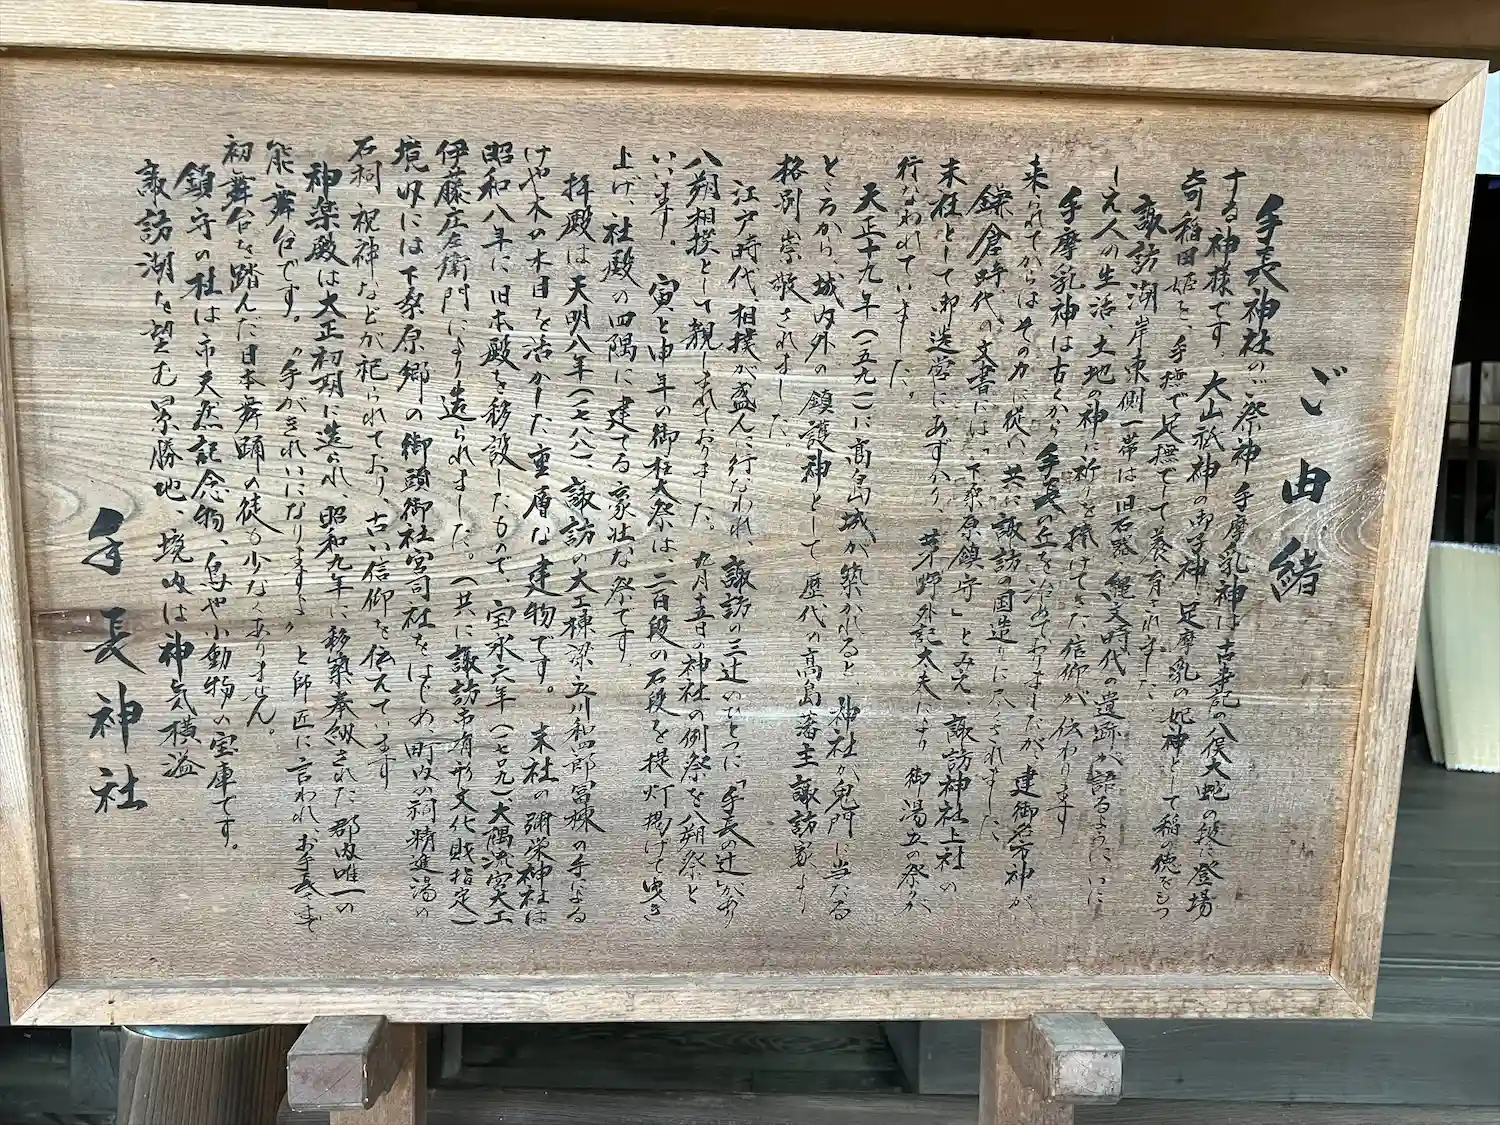 ご由緒
手長神社のご祭神 手摩乳神は古事記の八俣大蛇の段に登場
する神様です。大山祇神の御子神、足摩乳の妃神として稲の徳をもつ
奇稲田姫を、手撫で足撫でして養育されました
諏訪湖岸東側一帯は旧石器、縄文時代の遺跡が語るように、いに
しえ人の生活、土地の神に祈りを捧げてきた信仰が伝わります
手摩乳神は古くから手長の丘を治めておりましたが、建御名方神が
来られてからはその力に従い、共に諏訪の国造りに尽くされました、
鎌倉時代の文書には「下桑原鎮守」とみえ、諏訪神社上社の
末社として御造営にあずかり、茅野外記太夫により御湯立の祭りが
行なわれていました。
天正十九年(一五九一)に髙島城が築かれると、神社が鬼門に当たる
ところから、城内外の鎮護神として歴代の高島藩主諏訪家より
格別崇敬されました。
江戸時代、相撲が盛んに行なわれ、諏訪の三辻のひとつに「手長の辻」があり
八朔相撲として親しまれておりました。九月十五日の神社の例祭を八朔祭と
いいます。寅と申年の御柱大祭は、二百段の石段を提灯掲げて曳き
上げ、社殿の四隅に建てる豪壮な祭です。
拝殿は天明八年(一七八八)、諏訪の大工棟梁立川和四郎冨棟の手による
けや木の木目を活かした重層な建物です。末社の彌栄神社は
昭和八年に旧本殿を移設したもので、宝永六年(一七〇九)大隅流宮大工
伊藤庄左衛門により造られました。(共に諏訪市有形文化財指定)
境内には下桑原郷の御頭御社宮司社をはじめ、町内の祠、精進湯の
石祠、祝神などが祀られており、古い信仰を伝えています
神楽殿は大正初期に造られ、昭和九年に移築奉納された郡内唯一の
能舞台です。〝手がきれいになりますよ〟と師匠に言われ、お手長さまで
初舞台を踏んだ日本舞踊の徒も少なくありません。
鎮守の杜は市天然記念物、鳥や小動物の宝庫です。
諏訪湖を望む景勝地、境内は神気横溢
手長神社